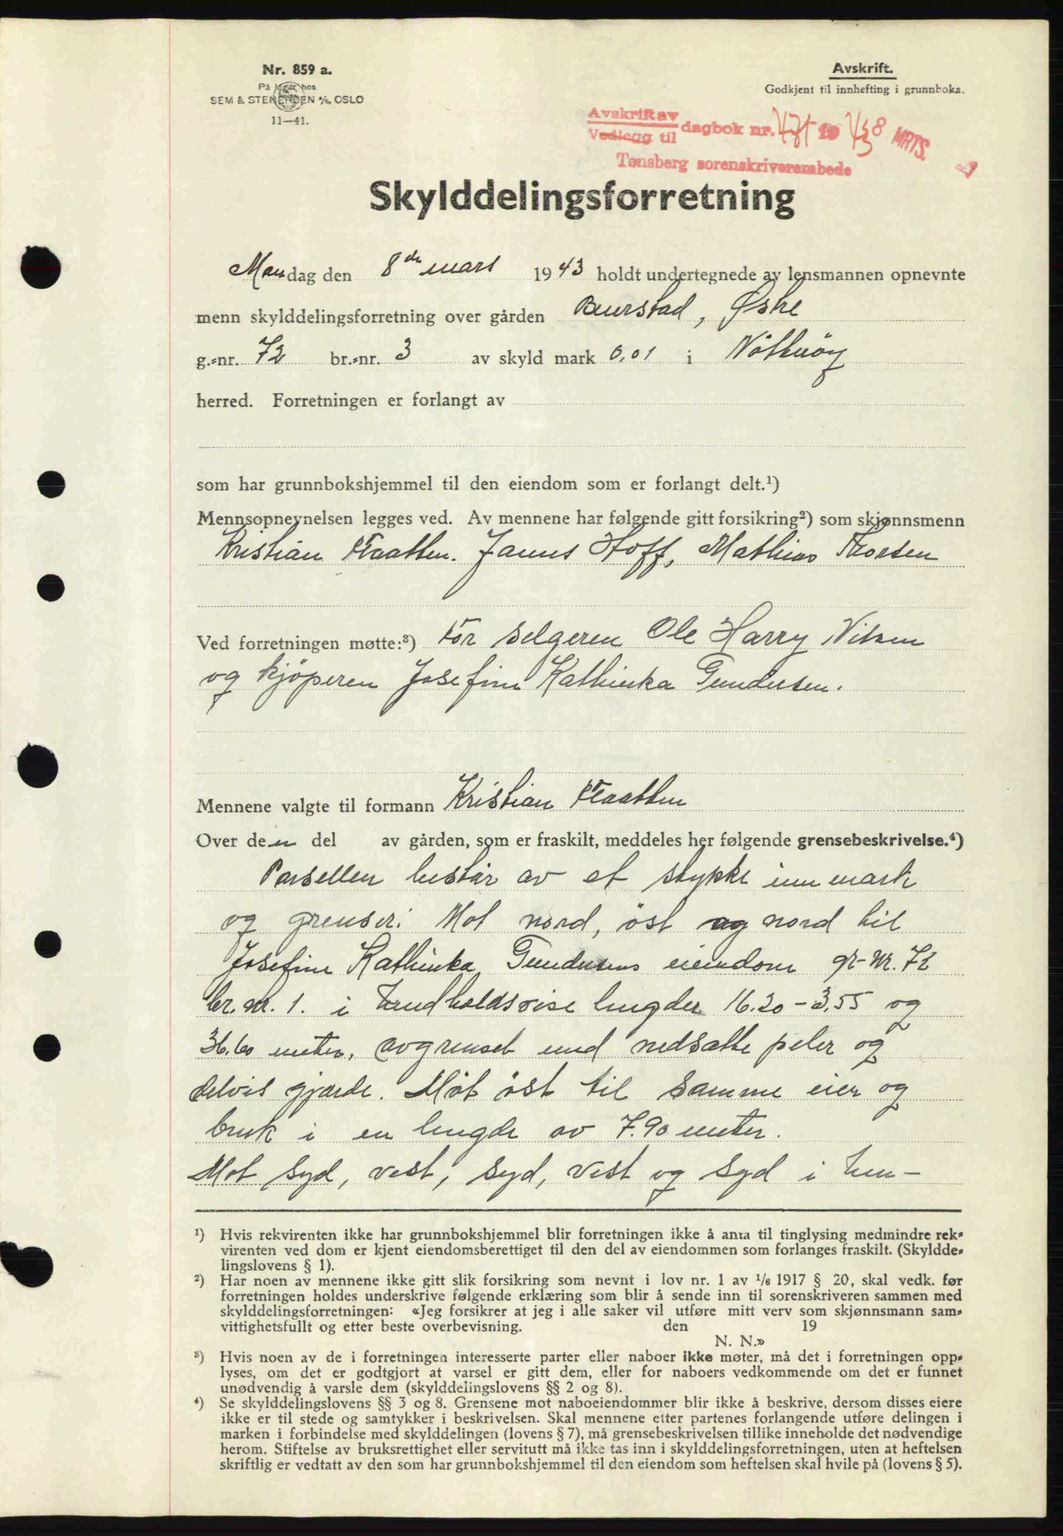 Nr. 859 a.
På lager hos
SEM & STENERSEN A/S, OSLO
11—41.
Avskrift.
Godkjent til innhefting i grunnboka.
Avskrift av
Vedlegg til dagbok nr. 19
Tønsberg sorenskriverembede
Skylddelingsforretning
Mandag den 8de mars 1943 holdt undertegnede av lensmannen opnevnte
menn skylddelingsforretning over gården Buerstad, Østre
g.-nr. 72 br.-nr. 3 av skyld mark 0,01 i Nøtterøy
herred. Forretningen er forlangt av
som har grunnbokshjemmel til den eiendom som er forlangt delt.¹)
Mennsopnevnelsen legges ved. Av mennene har følgende gitt forsikring²) som skjønnsmenn
Kristian Flaatten. Janus Hoff, Mathias Thorsen
Ved forretningen møtte:³) For selgeren Ole Harry Nilsen
og kjøperen Josefine Kathinka Gundersen.
Mennene valgte til formann Kristian Flaatten
Over den del av gården, som er fraskilt, meddeles her følgende grensebeskrivelse.⁴)
Parsellen består av et stykke innmark
og grenser: Mot nord, øst og nord til
Josefine Kathinka Gundersens eiendom gr-nr. 72
br. nr. 1. i henholdsvise lengder 16.20 – 3,55 og
36.60 meter, avgrenset med nedsatte peler og
delvis gjærde. Mot øst til samme eier og
bruk i en lengde av 7.90 meter.
Mot syd, vest, syd, vest og syd i hen-
¹) Hvis rekvirenten ikke har grunnbokshjemmel blir forretningen ikke å anta til tinglysing medmindre rek-
virenten ved dom er kjent eiendomsberettiget til den del av eiendommen som forlanges fraskilt. (Skyldde-
lingslovens § 1).
²) Har noen av mennene ikke gitt slik forsikring som nevnt i lov nr. 1 av 1/6 1917 § 20, skal vedk. før
forretningen holdes underskrive følgende erklæring som blir å sende inn til sorenskriveren sammen med
skylddelingsforretningen: «Jeg forsikrer at jeg i alle saker vil utføre mitt verv som skjønnsmann sam-
vittighetsfullt og etter beste overbevisning. den 19
N. N.»
³) Hvis noen av de i forretningen interesserte parter eller naboer ikke møter, må det i forretningen opp-
lyses, om det er godtgjort at varsel er gitt dem, eller for naboers vedkommende om det er funnet
unødvendig å varsle dem (skylddelingslovens §§ 2 og 8).
⁴) Se skylddelingslovens §§ 3 og 8. Grensene mot naboeiendommer blir ikke å beskrive, dersom disses eiere
ikke er til stede og samtykker i beskrivelsen. Skal mennene etter partenes forlangende utføre delingen i
marken i forbindelse med skylddelingen (lovens § 7), må grensebeskrivelsen tillike inneholde det nødvendige
herom. Stiftelse av bruksrettighet eller servitutt må ikke tas inn i skylddelingsforretningen, uten at heftelsen
skriftlig er vedtatt av den som har grunnbokshjemmel til den eiendom som heftelsen skal hvile på (lovens § 5).